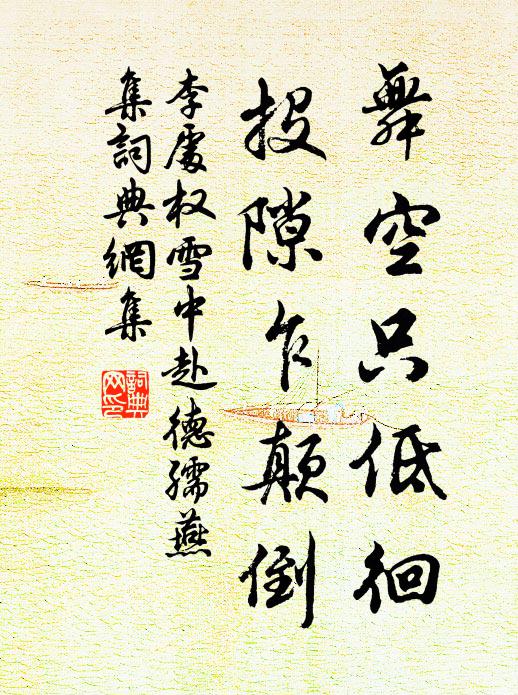 舞空只低徊
投隙乍颠倒
李處权雪中赴德孺燕
集詞典網集
詞典
网印